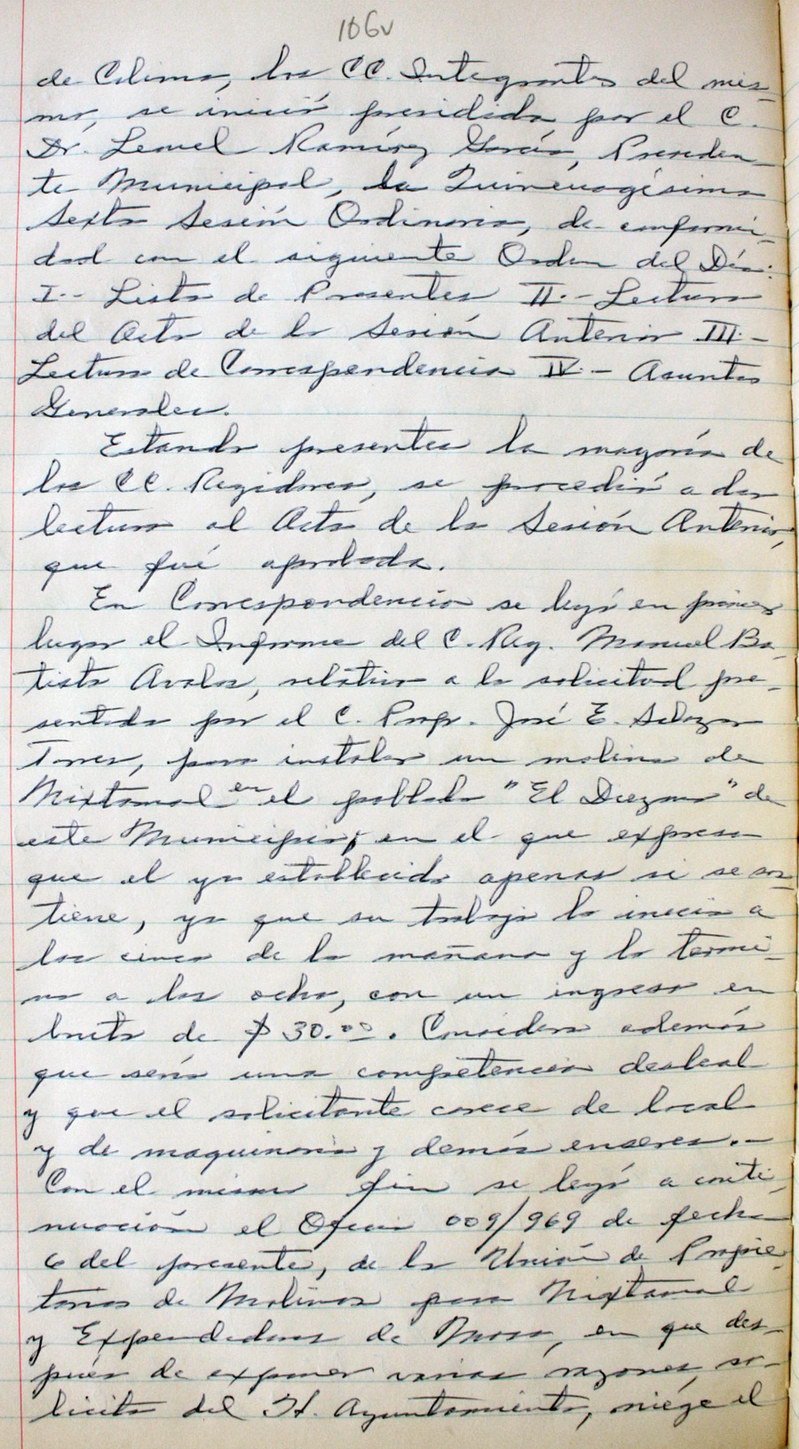 106v
de Colima, los CC. Integrantes del mis-
mo, se inició presidida por el C.
Dr. Leonel Ramírez García, Presiden-
te Municipal, la Quincuagésima
Sexta Sesión Ordinaria, de conformi-
dad con el siguiente Orden del Día:
I.- Lista de Presentes II.- Lectura
del Acta de la Sesión Anterior III.-
Lectura de Correspondencia IV.- Asuntos
Generales.
Estando presentes la mayoría de
los CC. Regidores, se procedió a dar
lectura al Acta de la Sesión Anterior,
que fué aprobada.
En Correspondencia se leyó en primer
lugar el Informe del C. Reg. Manuel Ba-
tista Avalos, relativo a la solicitud pre-
sentada por el C. Profr. José E. Salazar
Torres, para instalar un molino de
Nixtamal en el poblado "El Diezmo" de
este Municipio, en el que expresa
que el ya establecido apenas si se sos-
tiene, ya que su trabajo lo inicia a
las cinco de la mañana y lo termi-
na a las ocho, con un ingreso en
bruto de $ 30.00. Considera además
que sería una competencia desleal
y que el solicitante carece de local
y de maquinaria y demás enseres.-
Con el mismo fin se leyó a conti-
nuación el Oficio 009/969 de fecha
6 del presente, de la Unión de Propie-
tarios de Molinos para Nixtamal
y Expendedores de Masa, en que des-
pués de exponer varias razones, so-
licita del H. Ayuntamiento, niége el